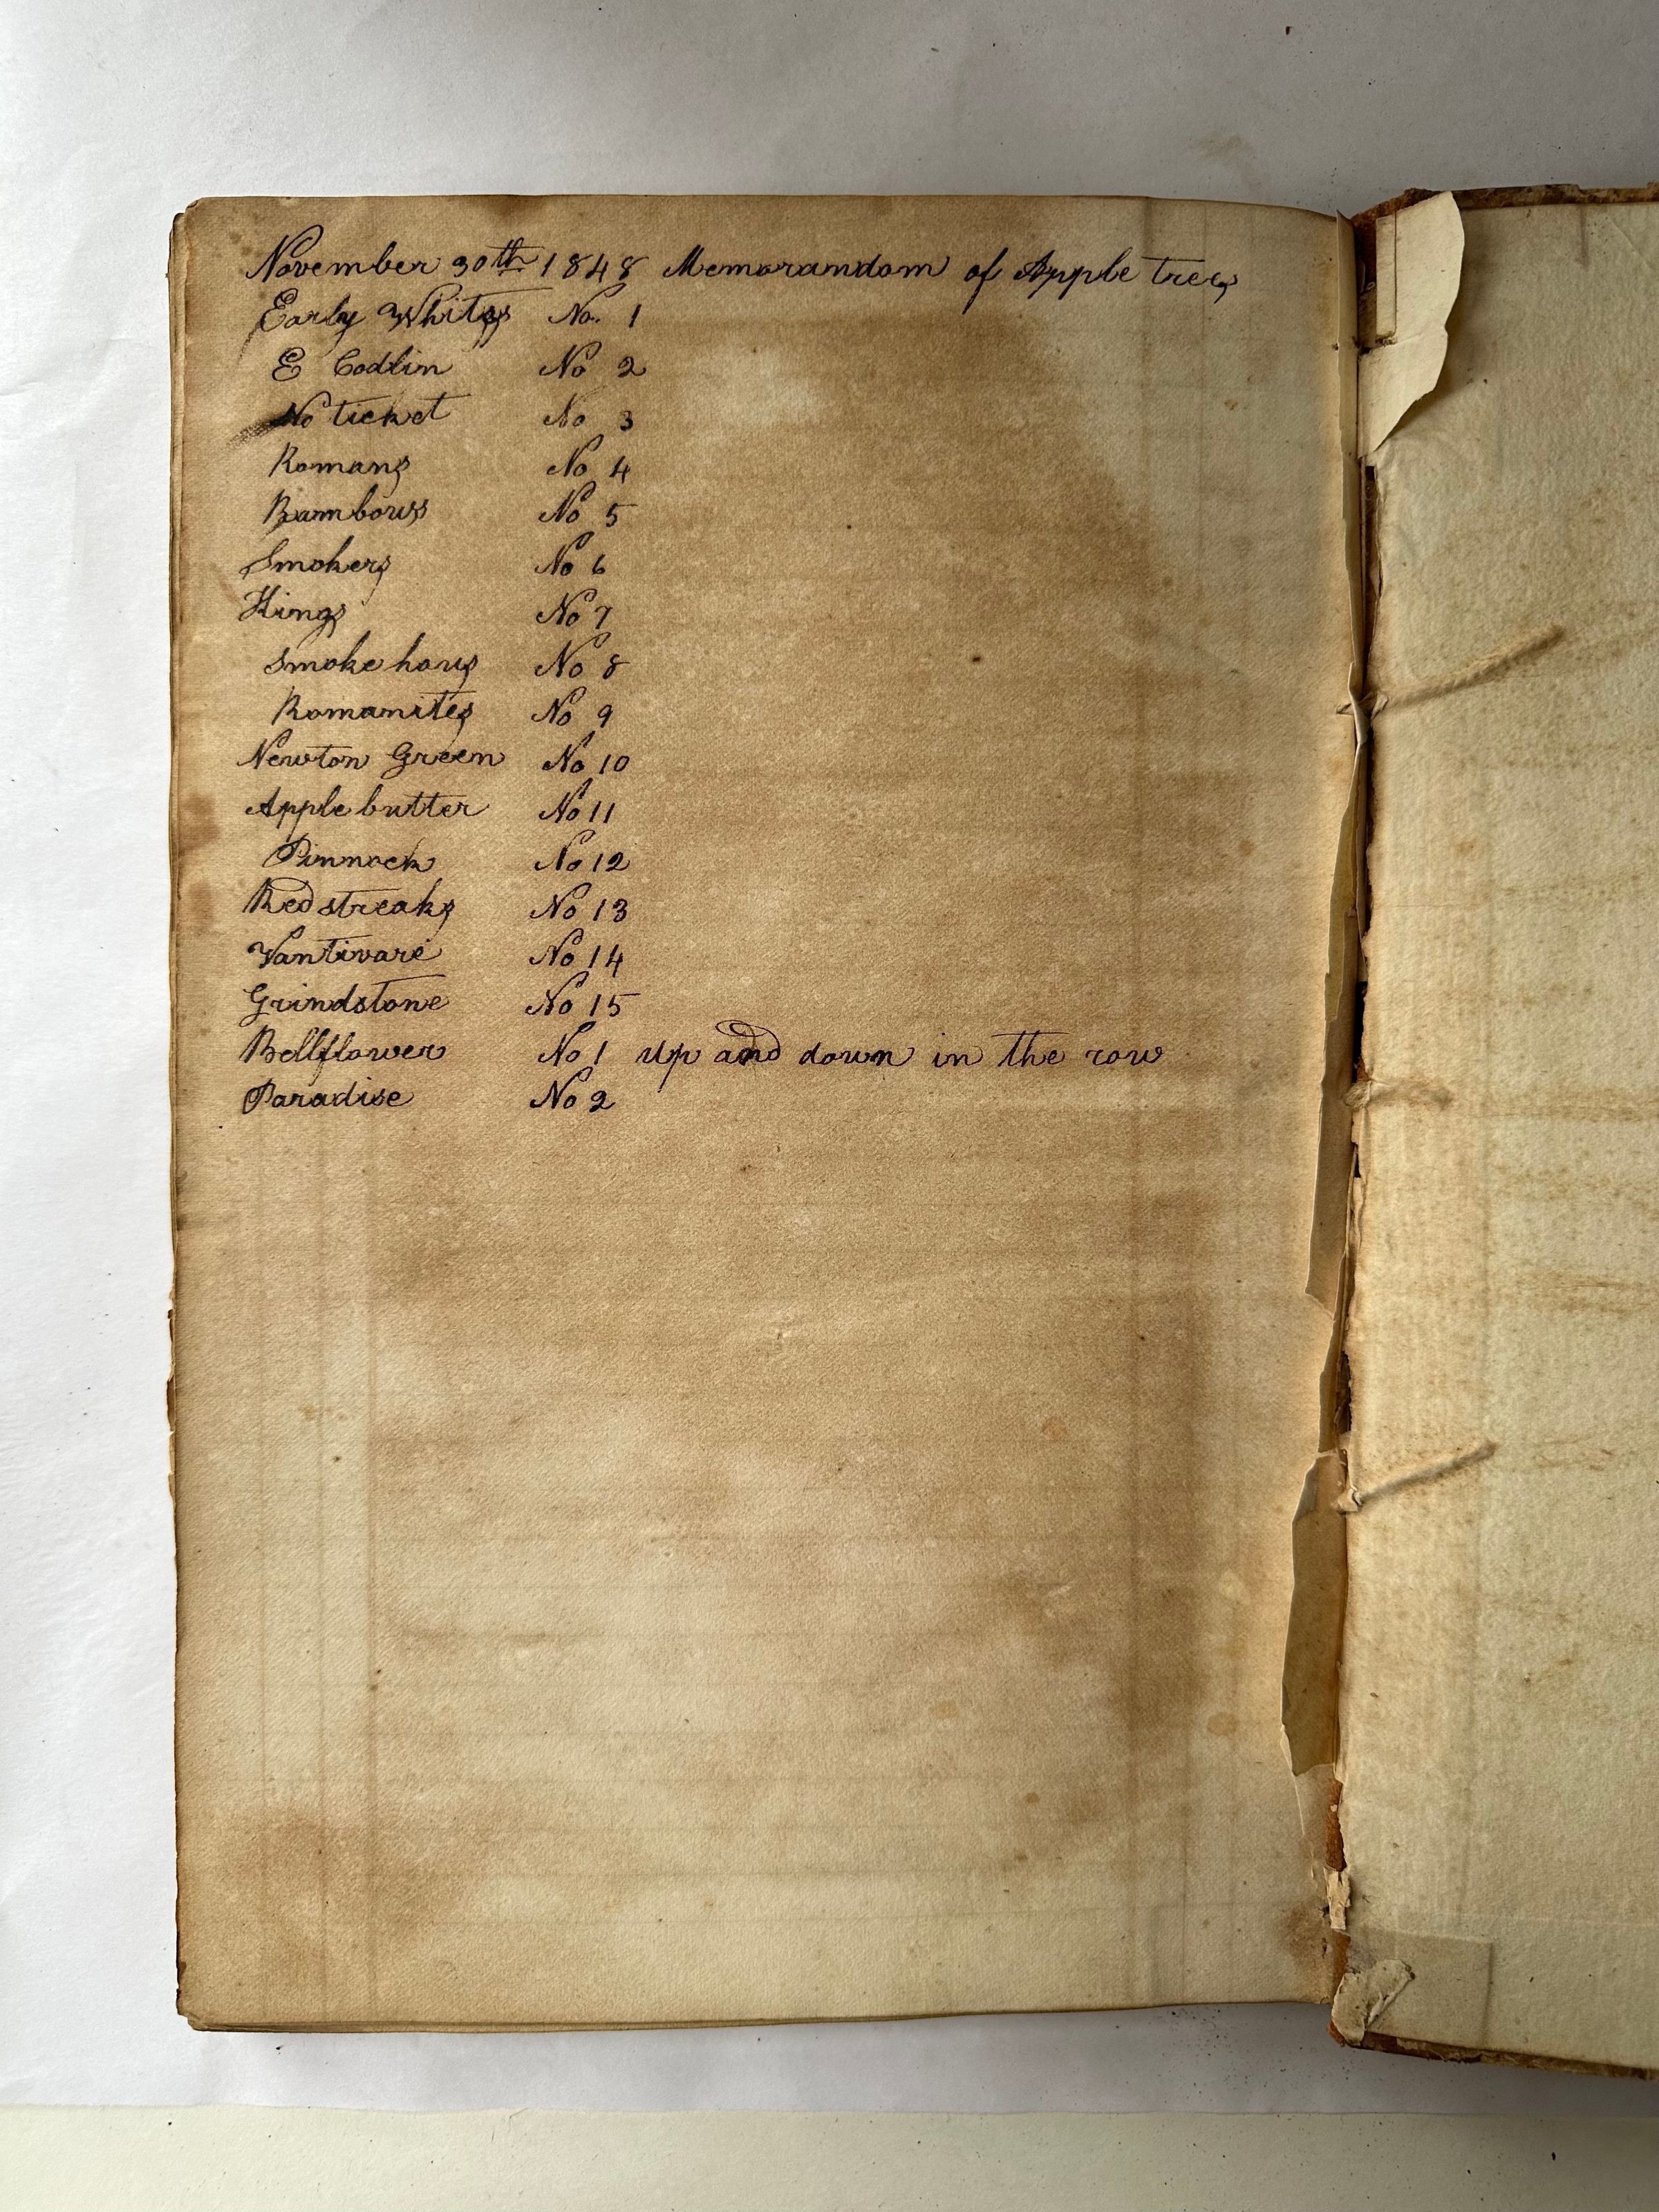 November 30th 1848 Memorandom of Apple trees
Early Whites No. 1
E Codlin No 2
No ticket No 3
Romans No 4
Rambours No 5
Smokers No 6
Kings No 7
Smoke hous No 8
Romanites No 9
Newton Green No 10
Apple butter No 11
Pinnock No 12
Red streaks No 13
Vantivare No 14
Grindstone No 15
Bellflower No 1 up and down in the row
Paradise No 2